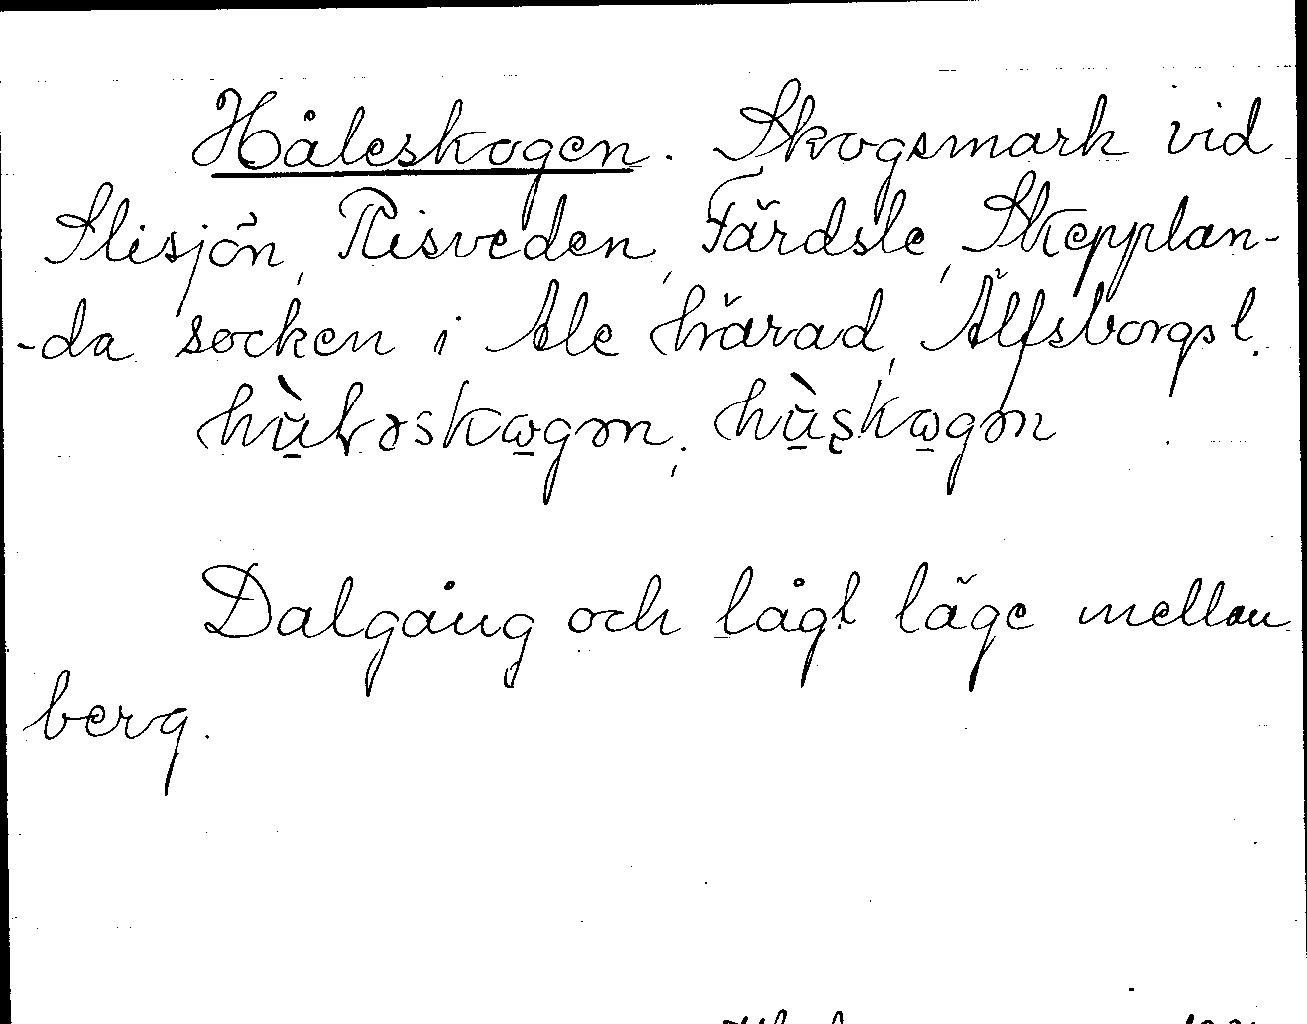 Håleskogen. Skogsmark vid
Slisjön, Risveden, Färdsle, Skepplan-
-da socken i Ale härad, Älfsborgs l.
hù̱ɫəskɷgən, hù̱şkɷgən
Dalgång och lågt läge mellan
berg.